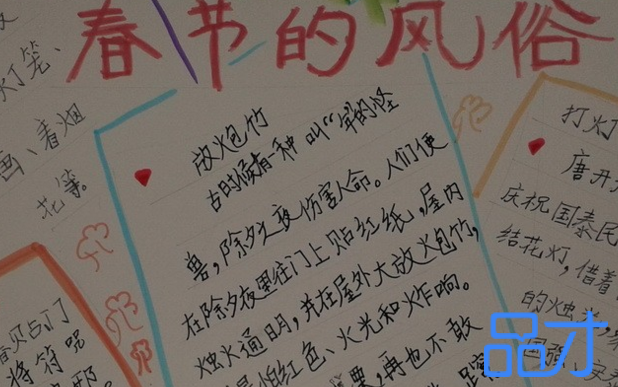 春节的风俗
灯笼、
画、看烟
花等。
春贴占门
将符呢
邪
放炮竹
古时候有一种叫“年”的怪
兽,除夕之夜伤害人命。人们便
在除夕夜里往门上贴红纸,屋内
烛火通明,并在屋外大放火包竹,
最怕红色、火光和炸响。
再也不敢
打灯
唐开
庆祝国泰民
结花灯,借着
的烛
国强
品才